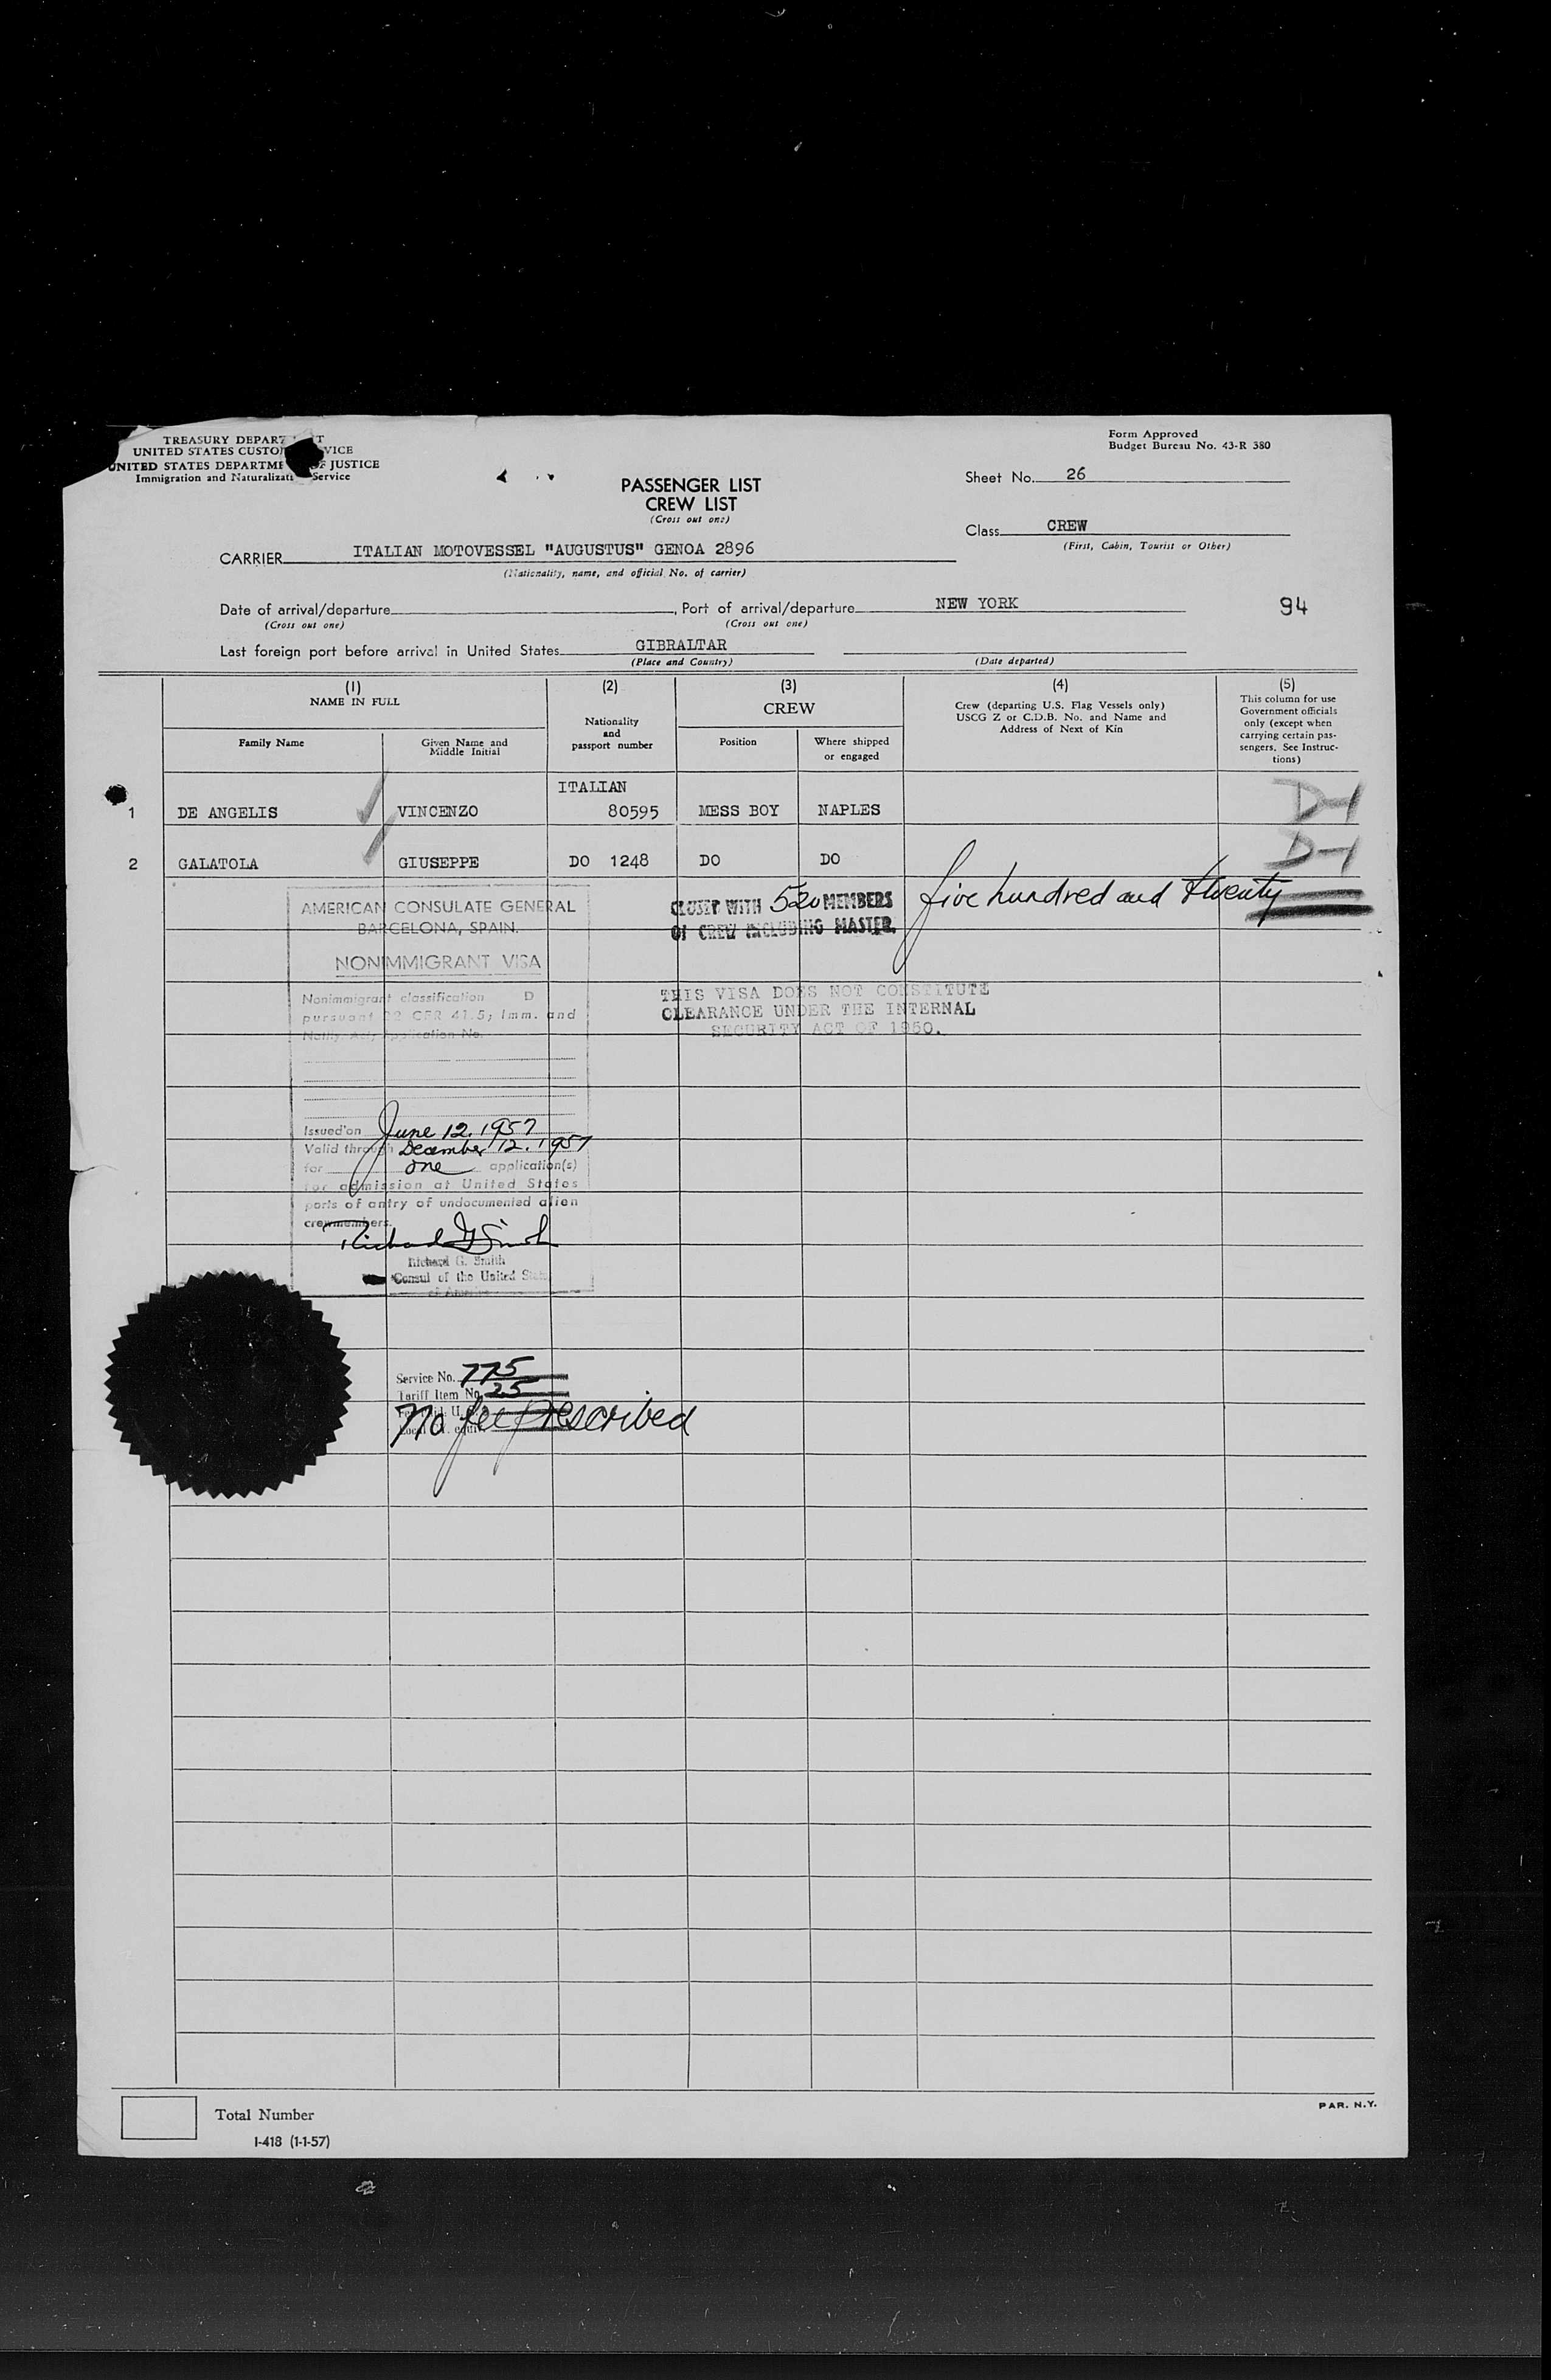 TREASURY DEPAR T
UNITED STATES CUSTO VICE
UNITED STATES DEPARTME OF JUSTICE
Immigration and Naturalizati Service
Form Approved
Budget Bureau No. 43-R 380
Sheet No. 26
PASSENGER LIST
CREW LIST
(Cross out one)
Class CREW
(First, Cabin, Tourist or Other)
CARRIER ITALIAN MOTOVESSEL "AUGUSTUS" GENOA 2896
(Nationality, name, and official No. of carrier)
Date of arrival/departure , Port of arrival/departure NEW YORK 94
(Cross out one) (Cross out one)
Last foreign port before arrival in United States GIBRALTAR
(Place and Country) (Date departed)
(1) (2) (3) (4) (5)
NAME IN FULL
Family Name
Given Name and
Middle Initial
Nationality
and
passport number
CREW
Position
Where shipped
or engaged
Crew (departing U.S. Flag Vessels only)
USCG Z or C.D.B. No. and Name and
Address of Next of Kin
This column for use
Government officials
only (except when
carrying certain pas-
sengers. See Instruc-
tions)
ITALIAN
1 DE ANGELIS VINCENZO 80595 MESS BOY NAPLES D-1
2 GALATOLA GIUSEPPE DO 1248 DO DO D-1
CLOSED WITH 520 MEMBERS five hundred and twenty
OF CREW INCLUDING MASTER.
AMERICAN CONSULATE GENERAL
BARCELONA, SPAIN.
NONIMMIGRANT VISA
Nonimmigrant classification D
pursuant 22 CFR 41.5; Imm. and
Natlty. Act; Application No.
THIS VISA DOES NOT CONSTITUTE
CLEARANCE UNDER THE INTERNAL
SECURITY ACT OF 1950.
Issued on June 12. 1957
Valid through December 12. 1957
for one application(s)
for admission at United States
ports of entry of undocumented alien
crewmembers.
Richard G Smith
Richard G. Smith
Consul of the United States
of America
Service No. 775
Tariff Item No. 25
No fee prescribed
Total Number
I-418 (1-1-57)
PAR. N.Y.